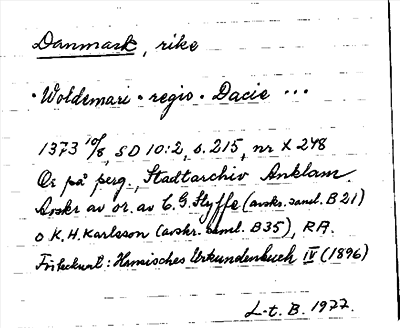 Danmark, rike
· Woldemari · regis · Dacie ...
1373 10/8, SD 10:2, s. 215, nr X 248
Or på perg., Stadtarchiv Anklam.
Avskr av or. av C.G. Styffe (avskr. saml. B 21)
o K.H. Karlsson (avskr. saml. B35), RA.
Hansisches Urkundenbuch IV (1896)
L-t. B. 1977.